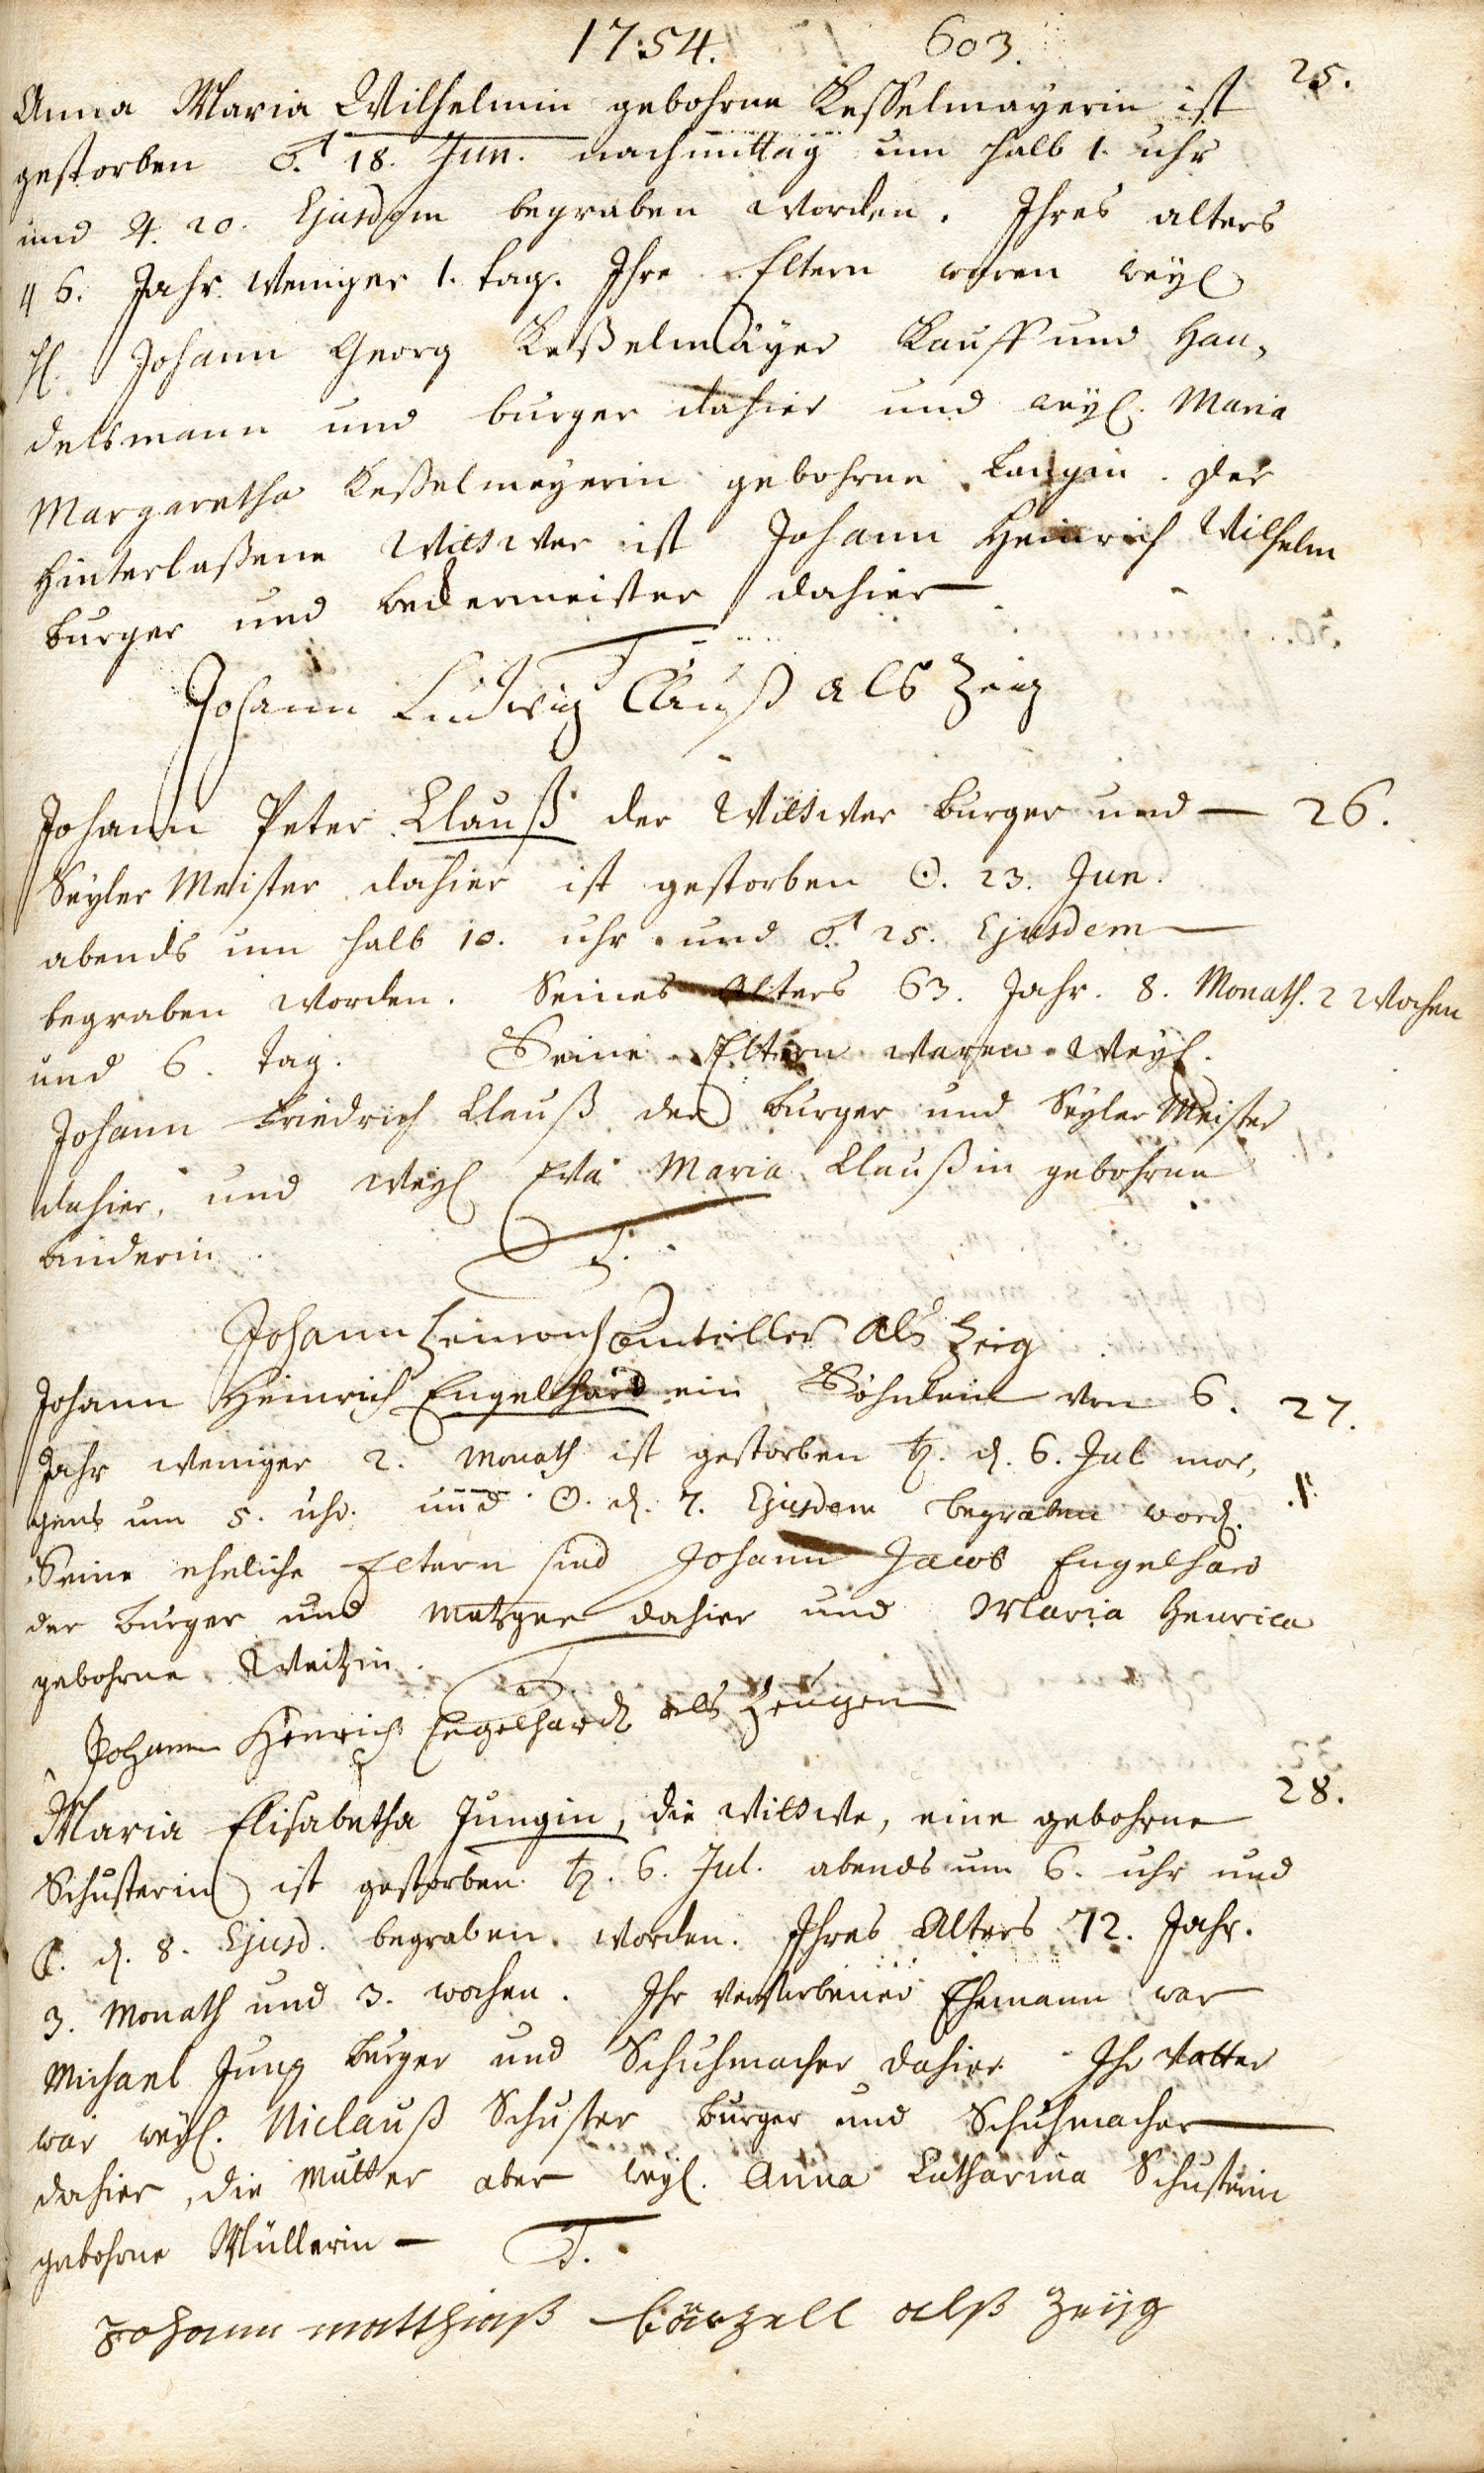 1754. 603.
Anna Maria Wilhelmin gebohrne Kesselmayerin ist 25.
gestorben ♂. 18. Jun. nachmittag um halb 1. uhr
und ♃. 20. Ejusdem begraben worden. Ihres alters
46. Jahr weniger 1. tag. Ihre Eltern waren weyl.
H. Johann Georg Keßelmäyer Kauff und Han-
delsmann und burger dahier und weyl. Maria
Margaretha Keßelmeyerin gebohrne Langin. Der
hinterlaßene Wittwer ist Johann Heinrich Wilhelm
burger und bedermeister dahier
Johann Ludwig Clauß als Zeig
Johann Peter Clauß der Wittwer burger und 26.
Seyler Meister dahier ist gestorben ☉. 23. Jun.
abends um halb 10. uhr und ♂. 25. Ejusdem
begraben worden. Seines Alters 63. Jahr. 8. Monath. 2 Wochen
und 6. tag. Seine Eltern waren Weyl.
Johann Friedrich Clauß der burger und Seyler Meister
dahier, und Weyl Eva Maria Claußin gebohrne
Johann als Zeig
Johann Heinrich Engelhard ein Söhnlein von 6. 27.
Jahr weniger 2. Monath ist gestorben ♄. d. 6. Jul mor-
gens um 5. uhr. und ☉. d. 7. Ejusdem begraben word.
Seine eheliche Eltern sind Johann Jacob Engelhard
der burger und Metzger dahier und Maria Henrica
gebohrne Weitzin.
T.
Johann Henrich Engelhard als Zeugen
Maria Elisabetha Jungin, die Wittwe, eine gebohrne 28.
Schusterin ist gestorben ♄. 6. Jul. abends um 6. uhr und
☾. d. 8. Ejusd. begraben worden. Ihres Alters 72. Jahr.
3. Monath und 3. wochen. Ihr verstorbener Ehemann war
Michael Jung burger und Schuhmacher dahier Ihr Vatter
war weyl. Niclauß Schuster burger und Schuhmacher
dahier, die Mutter aber weyl. Anna Catharina Schusterin
gebohrne Müllerin T.
Johann matthiaß alß Zeüg